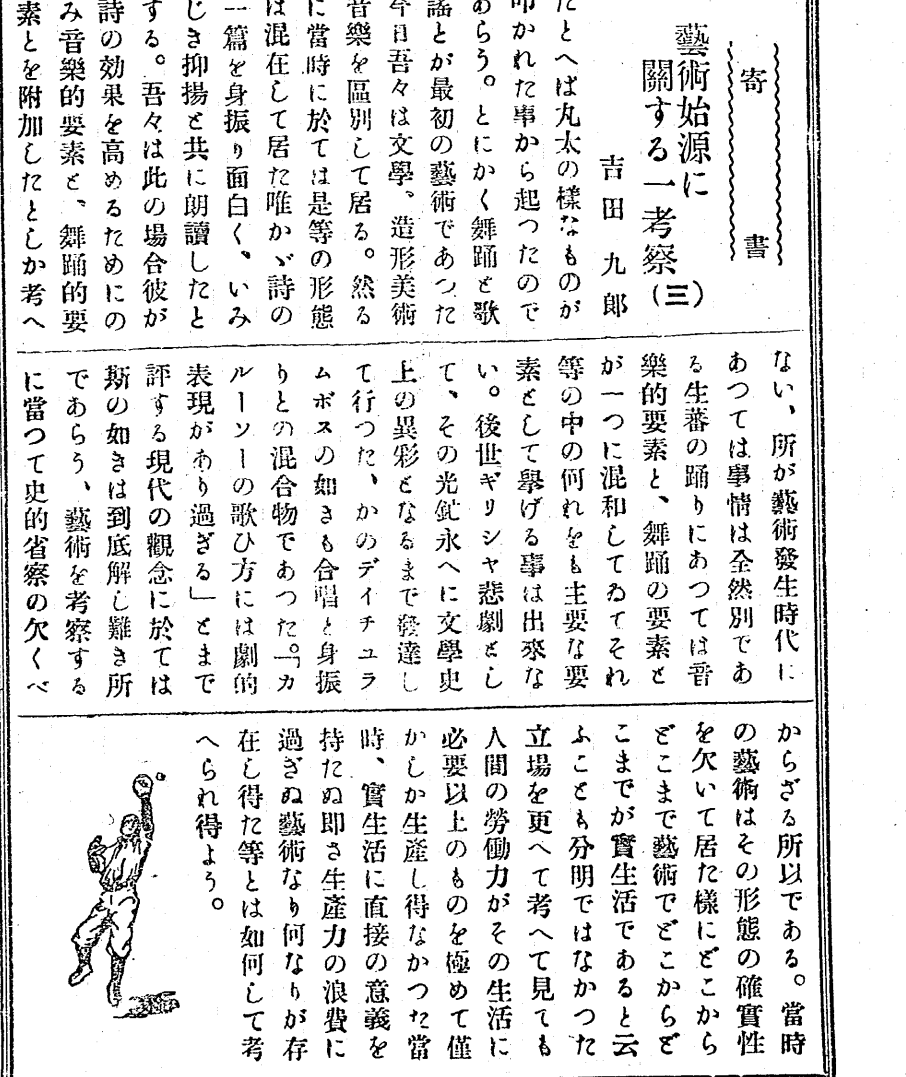 寄書
藝術始源に
關する一考察(三)
吉田九郎
たとへば丸太の樣なものが
叩かれた事から起つたので
あらう。とにかく舞踊と歌
謠とが最初の藝術であつた
今日吾々は文學、造形美術
音樂を區別して居る。然る
に當時に於ては是等の形態
は混在して居た唯かゞ詩の
一篇を身振り面白く、いみ
じき抑揚と共に朗讀したと
する。吾々は此の場合彼が
詩の効果を高めるためにの
み音樂的要素と、舞踊的要
素とを附加したとしか考へ
ない、所が藝術發生時代に
あつては事情は全然別であ
る生蕃の踊りにあつては音
樂的要素と、舞踊の要素と
が一つに混和してゐてそれ
等の中の何れをも主要な要
素として擧げる事は出來な
い。後世ギリシヤ悲劇とし
て、その光鋩永へに文學史
上の異彩となるまで發達し
て行つた、かのデイチユラ
ムボスの如きも合唱と身振
りとの混合物であつた。「カ
ルーソーの歌ひ方には劇的
表現があり過ぎる」とまで
評する現代の觀念に於ては
斯の如きは到底解し難き所
であらう、藝術を考察する
に當つて史的省察の欠くべ
からざる所以である。當時
の藝術はその形態の確實性
を欠いて居た樣にどこから
どこまで藝術でどこからど
こまでが實生活であると云
ふことも分明ではなかつた
立場を更へて考へて見ても
人間の勞働力がその生活に
必要以上のものを極めて僅
かしか生產し得なかつた當
時、實生活に直接の意義を
持たぬ即ち生產力の浪費に
過ぎぬ藝術なり何なりが存
在し得た等とは如何して考
へられ得よう。